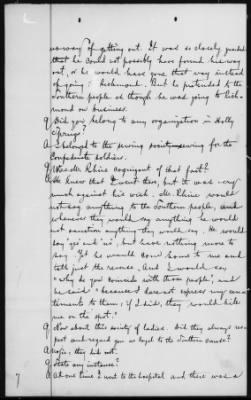 no way of getting out. It was so closely guarded
that he could not possibly have found his way
out, or he would have gone that way instead
of going to Richmond. But he pretended to the
Southern people as though he was going to Rich-
mond on business.
Q Did you belong to any organization in Holly
Springs?
A I belonged to the sewing society sewing for the
Confederate soldiers.
Q Was Mr Rhine cognizant of that fact?
A He knew that I went there, but it was very
much against his wish. Mr Rhine would
not say anything to the Southern people, and
whenever they would say anything he would
not sanction anything they would say. He would
say 'yes' and 'no', but have nothing more to
say. Yet he would come home to me and
tell just the reverse. And I would say
"why do you coincide with those people", and
he said "because I dare not express my sen-
timents to them; if I did, they would kill
me on the spot."
Q Now about this society of ladies. Did they always res-
pect and regard you as loyal to the Southern cause?
A No sir, they did not.
Q State any instance?
A At one time I went to the hospital and there was a
7